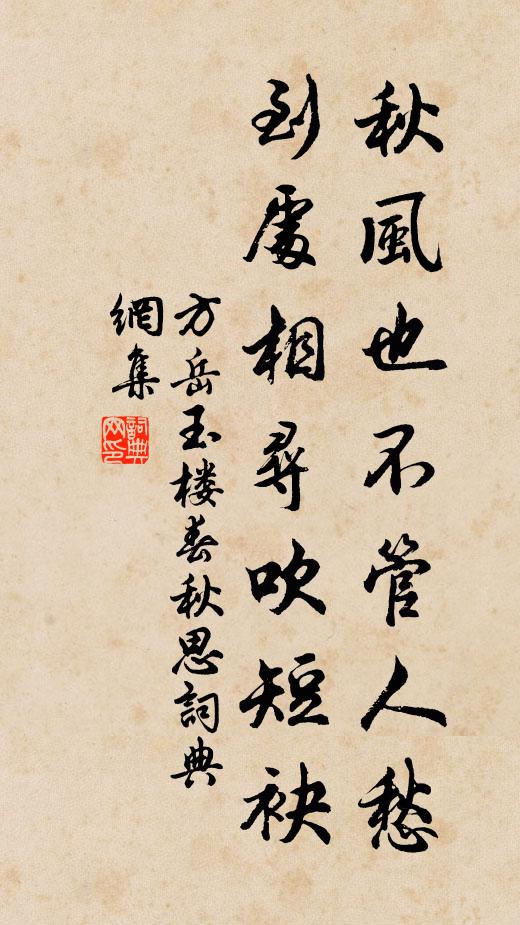 秋風也不管人愁
到處相尋吹短袂
方岳玉楼春秋思詞典
網集
詞典
网印